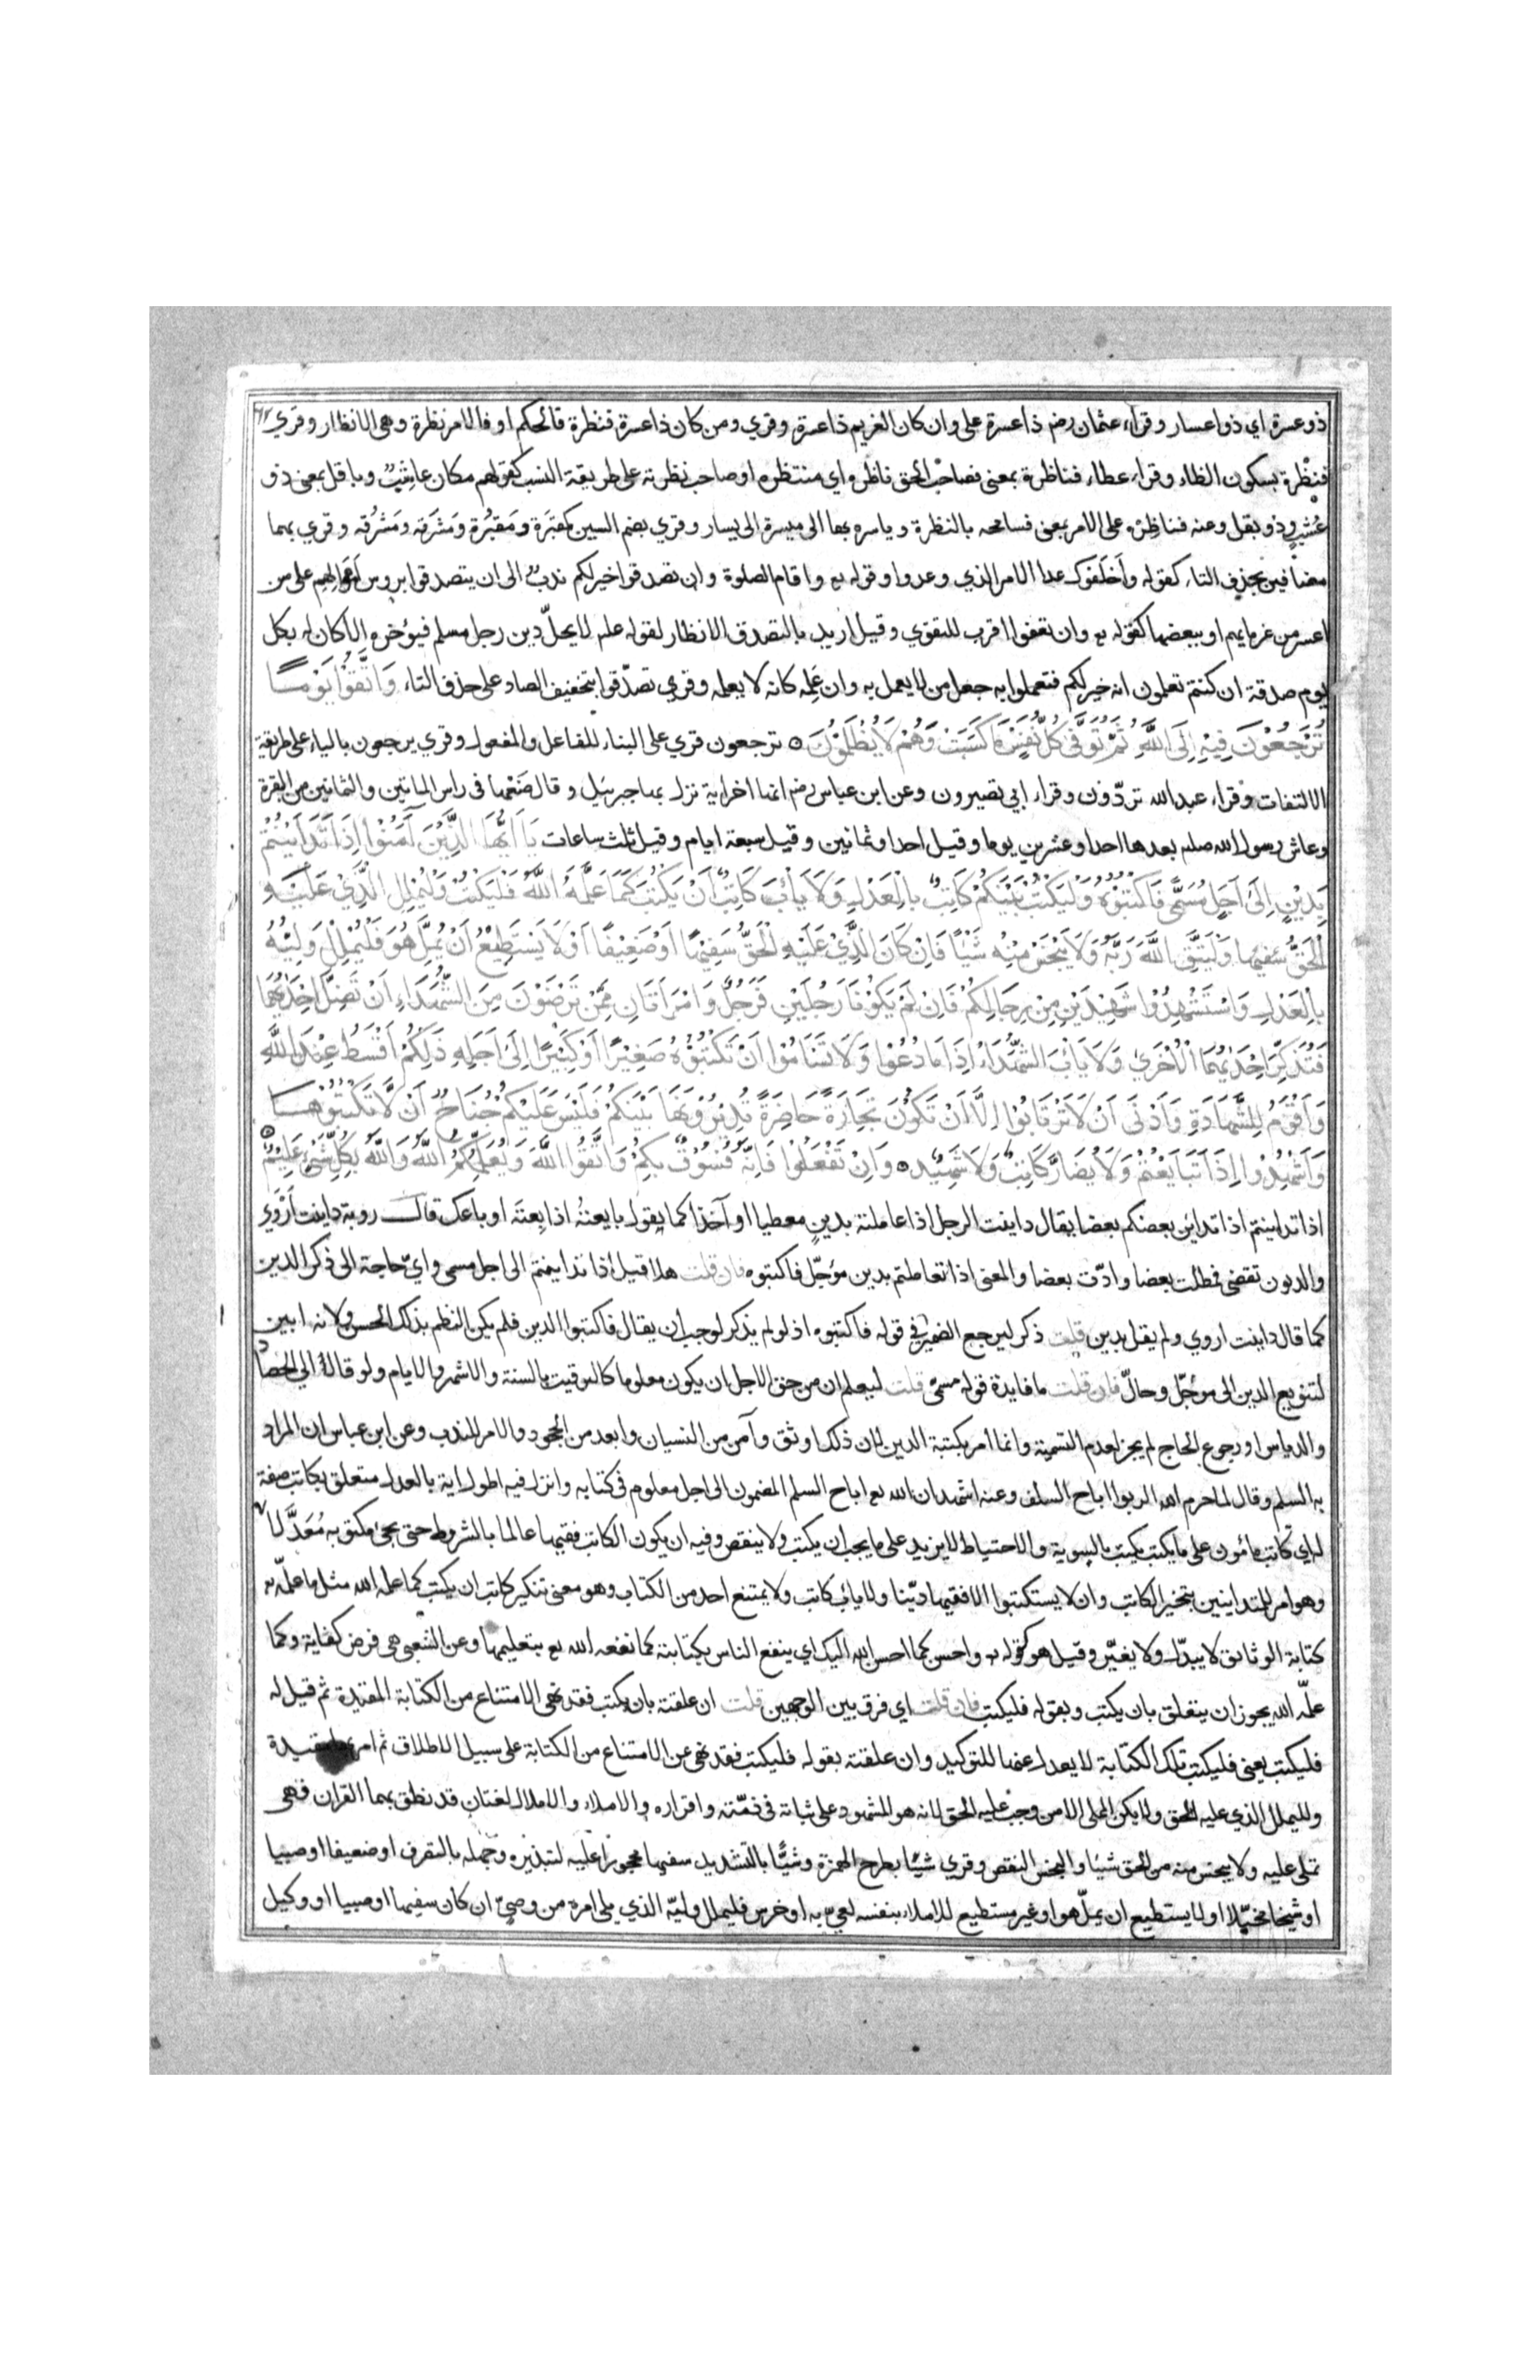 ذو عسرة اي ذو اعسار وقراء عثمان رضم ذا عسرة على وان كان الغريم ذا عسرة وقري ومن كان ذا عسرة فنظرة فالحكم او فالامر نظرة وهى الانظار وقري
فنظرة بسكون الظاء وقراء عطاء فناظرة بمعنى فصاحب الحق ناظره اي منتظره او صاحب نظرته على طريقة النسب كقولهم مكان عاشب وباقل بمعنى ذو
عشب وذو بقل وعنه فناظره على الامر بمعنى فسامحه بالنظرة وياسره بها الى ميسرة الى يسار وقري بضم السين كمقبرة ومقبرة ومشرقة ومشرقة وقري بهما
مضافين بحذف التاء كقوله وأخلفوك عدا الامر الذي وعدوا وقوله تع واقام الصلوة وان تصدقوا خير لكم ندب الى ان يتصدقوا بروس أموالهم على من
اعسر من غرمايهم او ببعضها كقوله تع وان تعفوا اقرب للتقوي وقيل اريد بالتصدق الانظار لقوله علم لا يحل دين رجل مسلم فيؤخره الا كان له بكل
يوم صدقة ان كنتم تعلمون انه خير لكم فتعملوا به جعل من لا يعمل به وان علمه كانه لا يعلمه وقري تصدقوا بتخفيف الصاد على حذف التاء وَاتَّقُوْا يَوْمًا
تُرْجَعُوْنَ فِيْهِ اِلَى اللَّهِ ثُمَّ تُوَفَّى كُلُّ نَفْسٍ مَا كَسَبَتْ وَهُمْ لَا يُظْلَمُوْنَ ٥ ترجعون قري على البناء للفاعل والمفعول وقري يرجعون بالياء على طريقة
الالتفات وقراء عبد الله تردون وقراء ابي تصيرون وعن ابن عباس رضم انها اخر اية نزل بها جبرئيل وقال ضعها فى راس الماتين والثمانين من البقرة
وعاش رسول الله صلم بعدها احدا وعشرين يوما وقيل احدا وثمانين وقيل سبعة ايام وقيل ثلث ساعات يَا اَيُّهَا الَّذِيْنَ آمَنُوْا اِذَا تَدَايَنْتُمْ
بِدَيْنٍ اِلَى اَجَلٍ مُسَمًّى فَاكْتُبُوْهُ وَلْيَكْتُبْ بَيْنَكُمْ كَاتِبٌ بِالْعَدْلِ وَلَا يَأْبَ كَاتِبٌ اَنْ يَكْتُبَ كَمَا عَلَّمَهُ اللَّهُ فَلْيَكْتُبْ وَلْيُمْلِلِ الَّذِيْ عَلَيْهِ
الْحَقُّ وَلْيَتَّقِ اللَّهَ رَبَّهُ وَلَا يَبْخَسْ مِنْهُ شَيْئًا فَاِنْ كَانَ الَّذِيْ عَلَيْهِ الْحَقُّ سَفِيْهًا اَوْ ضَعِيْفًا اَوْ لَا يَسْتَطِيْعُ اَنْ يُمِلَّ هُوَ فَلْيُمْلِلْ وَلِيُّهُ
بِالْعَدْلِ وَاسْتَشْهِدُوْا شَهِيْدَيْنِ مِنْ رِجَالِكُمْ فَاِنْ لَمْ يَكُوْنَا رَجُلَيْنِ فَرَجُلٌ وَامْرَأَتَانِ مِمَّنْ تَرْضَوْنَ مِنَ الشُّهَدَاءِ اَنْ تَضِلَّ اِحْدَاهُمَا
فَتُذَكِّرَ اِحْدَاهُمَا الْأُخْرَى وَلَا يَأْبَ الشُّهَدَاءُ اِذَا مَا دُعُوْا وَلَا تَسْأَمُوْا اَنْ تَكْتُبُوْهُ صَغِيْرًا اَوْ كَبِيْرًا اِلَى اَجَلِهِ ذَلِكُمْ اَقْسَطُ عِنْدَ اللَّهِ
وَاَقْوَمُ لِلشَّهَادَةِ وَاَدْنَى اَنْ لَا تَرْتَابُوْا اِلَّا اَنْ تَكُوْنَ تِجَارَةً حَاضِرَةً تُدِيْرُوْنَهَا بَيْنَكُمْ فَلَيْسَ عَلَيْكُمْ جُنَاحٌ اَنْ لَا تَكْتُبُوْهَا
وَاَشْهِدُوْا اِذَا تَبَايَعْتُمْ وَلَا يُضَارَّ كَاتِبٌ وَلَا شَهِيْدٌ ٥ وَاِنْ تَفْعَلُوْا فَاِنَّهُ فُسُوْقٌ بِكُمْ وَاتَّقُوا اللَّهَ وَيُعَلِّمُكُمُ اللَّهُ وَاللَّهُ بِكُلِّ شَيْءٍ عَلِيْمٌ
اذا تداينتم اذا تداين بعضكم بعضا يقال داينت الرجل اذا عاملته بدين معطيا او آخذا كما يقول بايعته اذا بعته او باعك قال روبة داينت أروي
والديون تقضى فطلت بعضا وادت بعضا والمعنى اذا تعاملتم بدين مؤجل فاكتبوه فان قلت هلا قيل اذا تداينتم الى اجل مسمى واي حاجة الى ذكر الدين
كما قال داينت اروي ولم يقل بدين قلت ذكر ليرجع الضمير في قوله فاكتبوه اذ لو لم يذكر لوجب أن يقال فاكتبوا الدين فلم يكن النظم بذلك الحسن ولانه ابين
لتنويع الدين الى مؤجل وحال فان قلت ما فايدة قوله مسمى قلت ليعلم ان من حق الاجل ان يكون معلوما كالتوقيت بالسنة والاشهر والايام ولو قال الي الحصاد
والدياس او رجوع الحاج لم يجز لعدم التسمية وانما امر بكتبة الدين لان ذلك اوثق وآمن من النسيان وابعد من الجحود والامر للندب وعن ابن عباس ان المراد
به السلم وقال لما حرم الله الربوا اباح السلف وعنه اشهد ان الله تع اباح السلم المضمون الى اجل معلوم فى كتابه وانزل فيه اطول اية بالعدل متعلق بكاتب صفة
له اي كاتب مأمون على ما يكتب يكتب بالسوية والاحتياط لا يزيد على ما يجب ان يكتب ولا ينقص وفيه ان يكون الكاتب فقيها عالما بالشروط حتى يجئ مكتوبه معدلا
وهو امر للمتداينين بتخير الكاتب وان لا يستكتبوا الا فقيها دينا ولا ياب كاتب ولا يمتنع احد من الكتاب وهو معنى تنكير كاتب ان يكتب كما علمه الله مثل ما علمه
كتابة الوثائق لا يبدل ولا يغير وقيل هو كقوله تع واحسن كما احسن الله اليك اي ينفع الناس بكتابته كما نفعه الله تع بتعليمها وعن الشعبى هى فرض كفاية وكما
علمه الله يجوز ان يتعلق بان يكتب وبقوله فليكتب فان قلت اي فرق بين الوجهين قلت ان علقته بان يكتب فقد نهى الامتناع من الكتابة المقيدة ثم قيل له
فليكتب يعنى فليكتب تلك الكتابة لا يعدل عنها للتوكيد وان علقته بقوله فليكتب فقد نهى عن الامتناع من الكتابة على سبيل الاطلاق ثم امر بها مقيدة
وليملل الذي عليه الحق ولا يكن المملى الا من وجب عليه الحق لانه هو المشهود على ثباته فى ذمته واقراره والاملاء والاملال لغتان قد نطق بهما القران فهى
تملى عليه ولا يبخس منه من الحق شيئا والبخس النقص وقري شيا بطرح الهمزة وشيا بالتشديد سفيها محجورا عليه لتبذيره وجهله بالتصرف او ضعيفا او صبيا
او شيخا مختلا او لا يستطيع ان يمل هو او غير مستطيع للاملاء بنفسه لعي به او خرس فليملل وليه الذي يلى امره من وصي ان كان سفيها او صبيا او وكيل